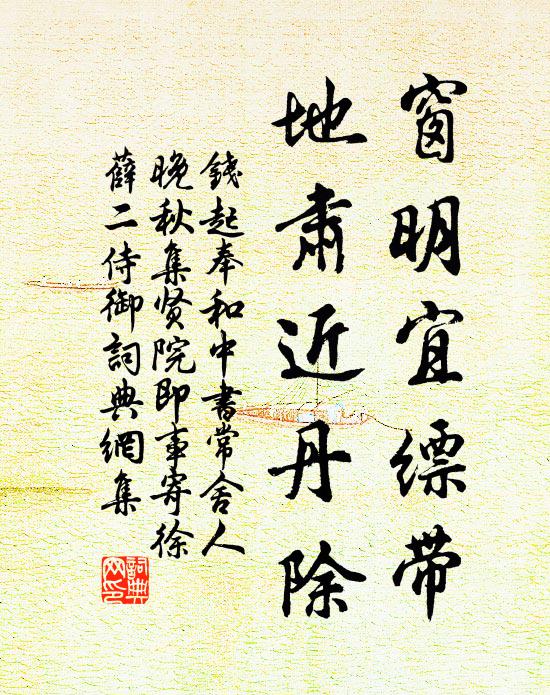 窗明宜缥带
地肃近丹除
錢起奉和中書常舍人
晚秋集贤院即事寄徐
薛二侍御詞典網集
詞典网印